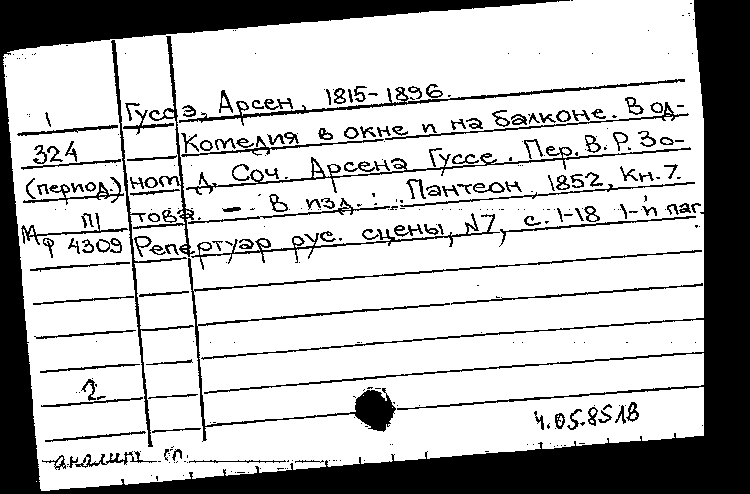 1 Гуссэ, Арсен, 1815-1896.
324 Комедия в окне и на балконе. В од-
(период.) ном д. Соч. Арсена Гуссе. Пер. В. Р. Зо-
П1 това. - В изд.: Пантеон, 1852, Кн. 7.
Мф 4309 Репертуар рус. сцены, №7, с. 1-18 1-й паг.
2
4.05.85
аналит